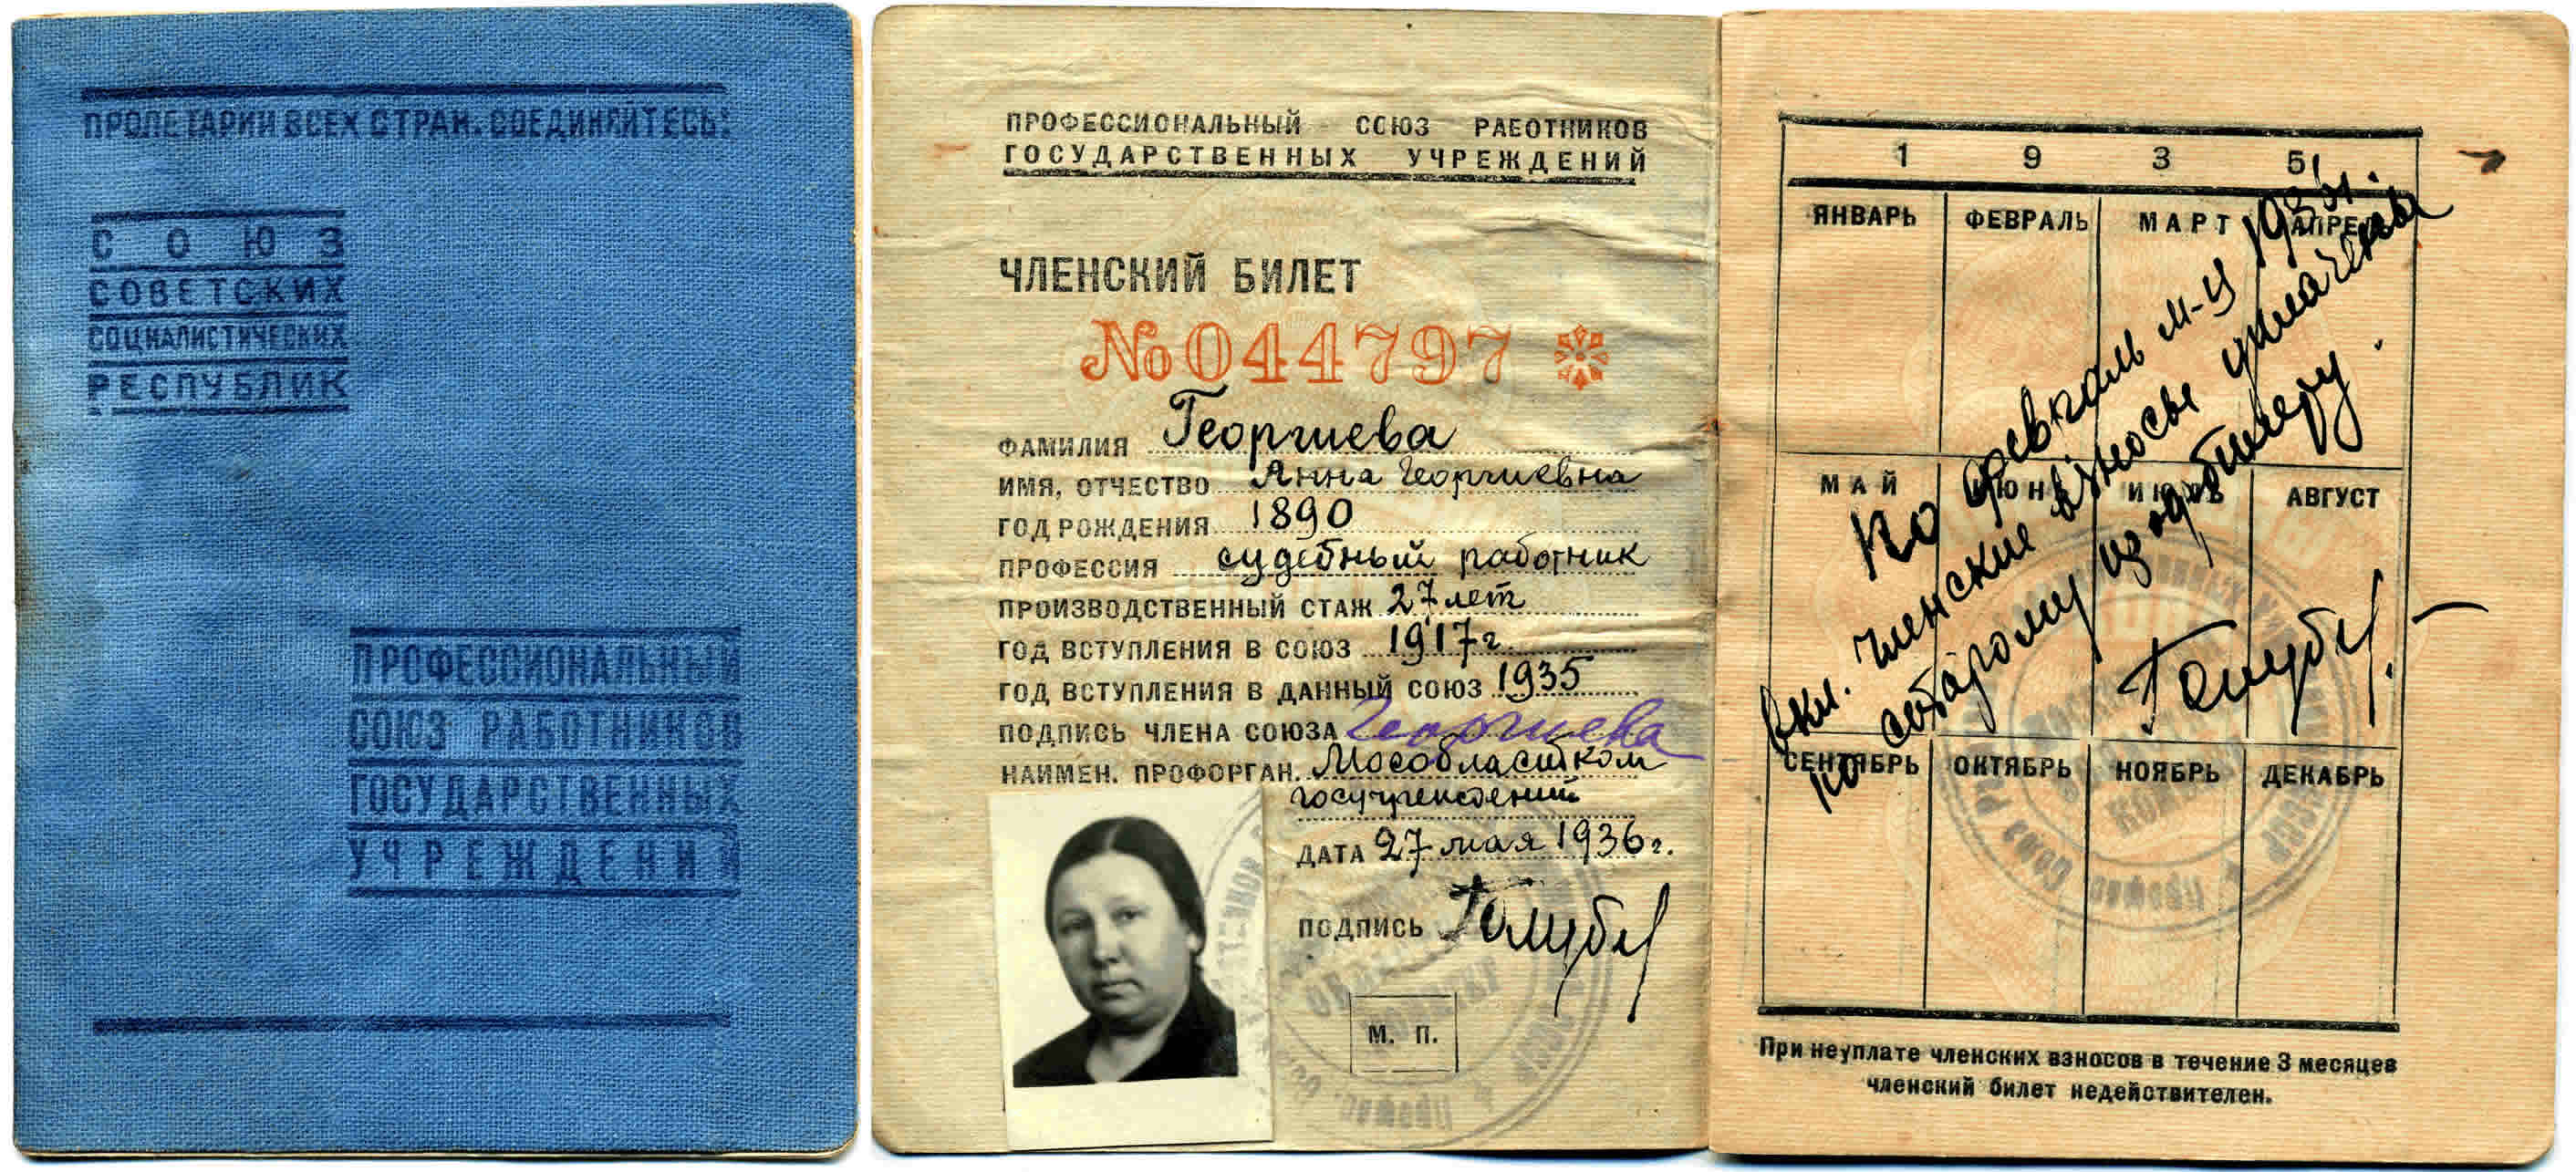 ПРОЛЕТАРИИ ВСЕХ СТРАН, СОЕДИНЯЙТЕСЬ!
СОЮЗ
СОВЕТСКИХ
СОЦИАЛИСТИЧЕСКИХ
РЕСПУБЛИК
ПРОФЕССИОНАЛЬНЫЙ
СОЮЗ РАБОТНИКОВ
ГОСУДАРСТВЕННЫХ
УЧРЕЖДЕНИЙ
ПРОФЕССИОНАЛЬНЫЙ СОЮЗ РАБОТНИКОВ
ГОСУДАРСТВЕННЫХ УЧРЕЖДЕНИЙ
ЧЛЕНСКИЙ БИЛЕТ
№ 044797
ФАМИЛИЯ Георгиева
ИМЯ, ОТЧЕСТВО Анна Георгиевна
ГОД РОЖДЕНИЯ 1890
ПРОФЕССИЯ судебный работник
ПРОИЗВОДСТВЕННЫЙ СТАЖ 27 лет
ГОД ВСТУПЛЕНИЯ В СОЮЗ 1917 г.
ГОД ВСТУПЛЕНИЯ В ДАННЫЙ СОЮЗ 1935
ПОДПИСЬ ЧЛЕНА СОЮЗА Георгиева
НАИМЕН. ПРОФОРГАН. Мособластком
госучреждений
ДАТА 27 мая 1936 г.
ПОДПИСЬ Голуб
М. П.
1 9 3 5
ЯНВАРЬ ФЕВРАЛЬ МАРТ АПРЕЛЬ
МАЙ ИЮНЬ ИЮЛЬ АВГУСТ
СЕНТЯБРЬ ОКТЯБРЬ НОЯБРЬ ДЕКАБРЬ
По февраль м-ц
вкл. членские взносы уплачены
по старому профбилету.
При неуплате членских взносов в течение 3 месяцев
членский билет недействителен.